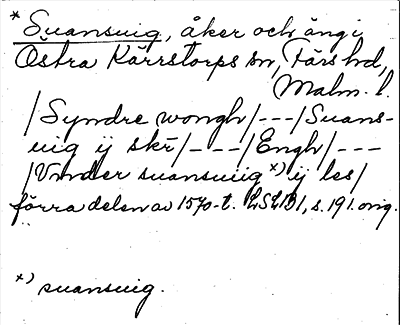 * Suansuig, åker och äng i
Östra Kärrstorps sn, Färs hd,
Malm. l.
/Syndre wongh/---/Suans-
uig ij skr̄/---/Engh/---
/Vnder suansuig x) ij les/
förra delen av 1570-t. LSLB1, s. 191. orig.
x) suansuig.